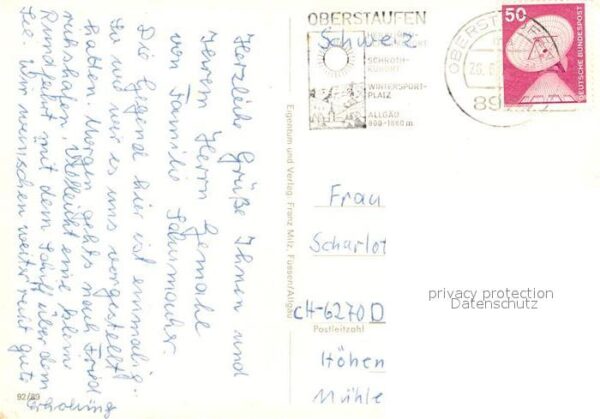 Herzliche Grüße Ihnen und
Ihrem Herrn Gemahl
von Familie Schumacher.
Die Gegend hier ist einmalig.
So wie wir es uns vorgestellt
hatten. Morgen gehts nach Fried
richshafen. Vielleicht eine kleine
Rundfahrt mit dem Schiff über dem
See. Wir wünschen weiter recht gute
Erholung
92/89
Eigentum und Verlag: Franz Milz, Füssen/Allgäu
OBERSTAUFEN
SCHROTH-
KURORT
WINTERSPORT-
PLATZ
ALLGÄU
800-1800 m
Schweiz
OBERST
26.
89
50
DEUTSCHE BUNDESPOST
Frau
Scharlot
CH-6270 D
Postleitzahl
Höhen
Mühle
privacy protection
Datenschutz